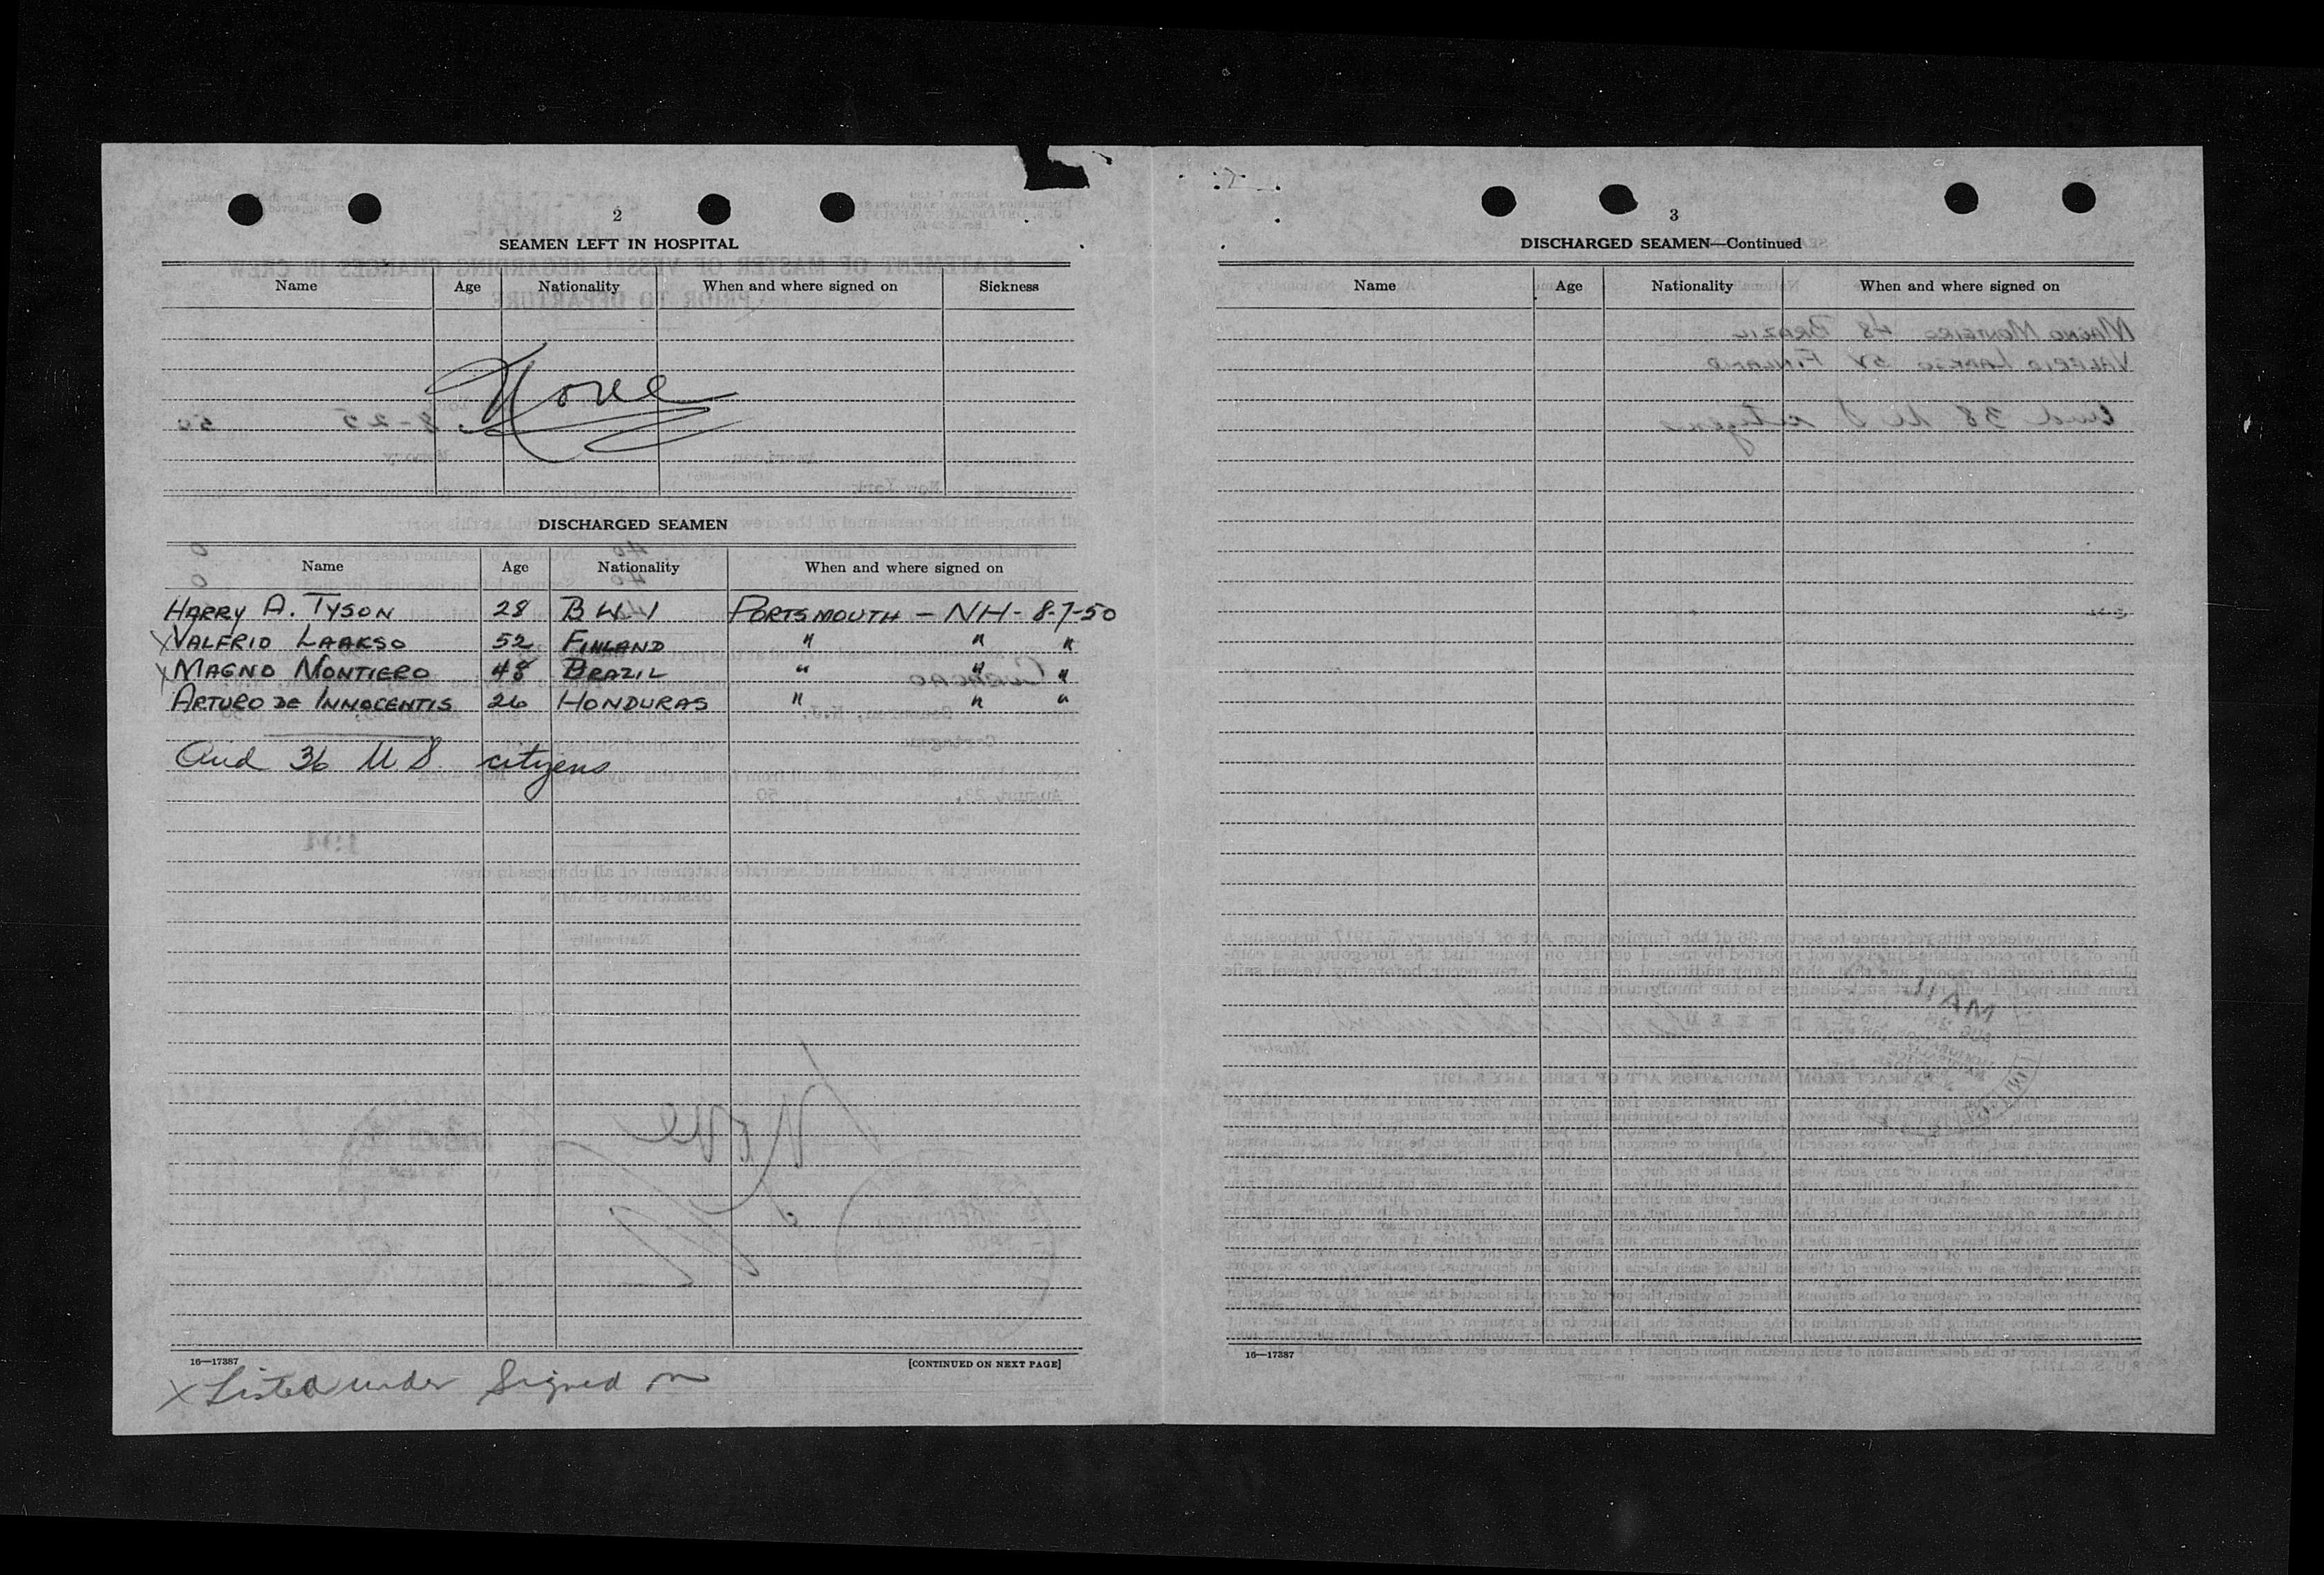 2
SEAMEN LEFT IN HOSPITAL
Name Age Nationality When and where signed on Sickness
None
DISCHARGED SEAMEN
Name Age Nationality When and where signed on
HARRY A. TYSON 28 B W I PORTSMOUTH - NH - 8-7-50
X VALERIO LAAKSO 52 FINLAND " " "
X MAGNO MONTIERO 48 BRAZIL " " "
ARTURO DE INNOCENTIS 26 HONDURAS " " "
And 36 U S. citizens
16—17387
[CONTINUED ON NEXT PAGE]
X Listed under Signed on
3
DISCHARGED SEAMEN—Continued
Name Age Nationality When and where signed on
16—17387